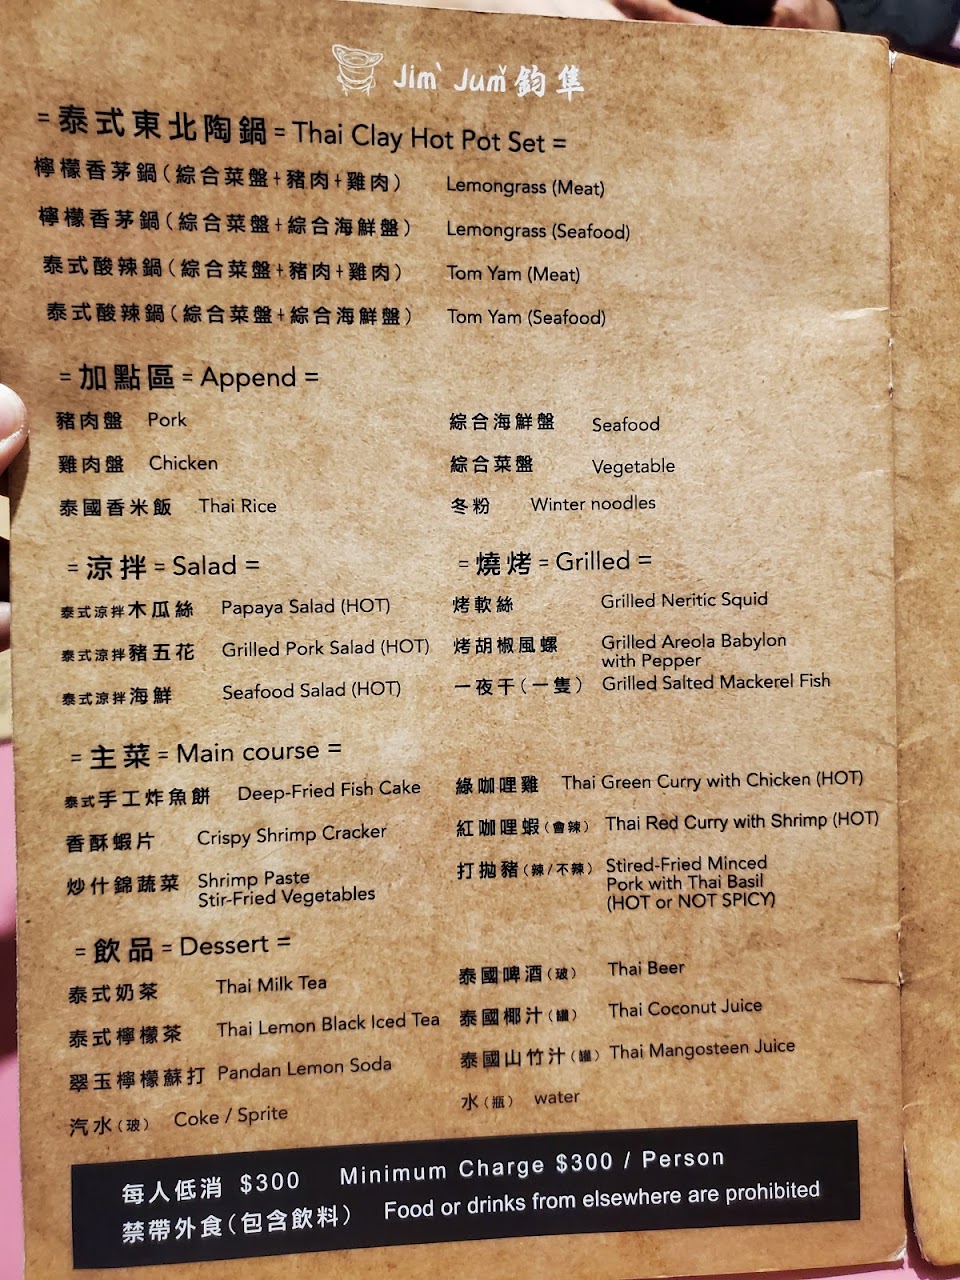 Jim Jum 鈞隼
=泰式東北陶鍋= Thai Clay Hot Pot Set =
檸檬香茅鍋(綜合菜盤+豬肉+雞肉) Lemongrass (Meat)
檸檬香茅鍋(綜合菜盤+綜合海鮮盤) Lemongrass (Seafood)
泰式酸辣鍋(綜合菜盤+豬肉+雞肉) Tom Yam (Meat)
泰式酸辣鍋(綜合菜盤+綜合海鮮盤) Tom Yam (Seafood)
=加點區= Append =
豬肉盤 Pork
綜合海鮮盤 Seafood
雞肉盤 Chicken
綜合菜盤 Vegetable
泰國香米飯 Thai Rice
冬粉 Winter noodles
=涼拌= Salad =
泰式涼拌木瓜絲 Papaya Salad (HOT)
泰式涼拌豬五花 Grilled Pork Salad (HOT)
泰式涼拌海鮮 Seafood Salad (HOT)
=燒烤= Grilled =
烤軟絲 Grilled Neritic Squid
烤胡椒風螺 Grilled Areola Babylon
with Pepper
一夜干(一隻) Grilled Salted Mackerel Fish
=主菜= Main course =
泰式手工炸魚餅 Deep-Fried Fish Cake
香酥蝦片 Crispy Shrimp Cracker
炒什錦蔬菜 Shrimp Paste
Stir-Fried Vegetables
綠咖哩雞 Thai Green Curry with Chicken (HOT)
紅咖哩蝦(會辣) Thai Red Curry with Shrimp (HOT)
打拋豬(辣/不辣) Stired-Fried Minced
Pork with Thai Basil
(HOT or NOT SPICY)
=飲品= Dessert =
泰式奶茶 Thai Milk Tea
泰式檸檬茶 Thai Lemon Black Iced Tea
翠玉檸檬蘇打 Pandan Lemon Soda
汽水(玻) Coke / Sprite
泰國啤酒(玻) Thai Beer
泰國椰汁(罐) Thai Coconut Juice
泰國山竹汁(罐) Thai Mangosteen Juice
水(瓶) water
每人低消 $300 Minimum Charge $300 / Person
禁帶外食(包含飲料) Food or drinks from elsewhere are prohibited